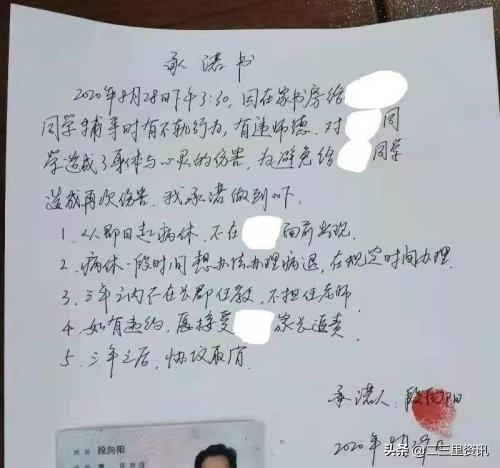 承诺书
2020年8月28日下午3:30,因在家书房给
同学辅导时有不轨行为,有违师德.对 同
学造成了身体与心灵的伤害,为避免给 同学
造成再次伤害,我承诺做到以下:
1、从即日起病休,不在 面前出现.
2、病休一段时间想办法办理病退,在规定时间办理.
3、三年之内不在长郡任教,不担任老师
4、如有违约,愿接受 家长追责
5、三年之后,协议取消
承诺人:段向阳
2020年8月29日
姓名 段向阳
头条@二三里资讯